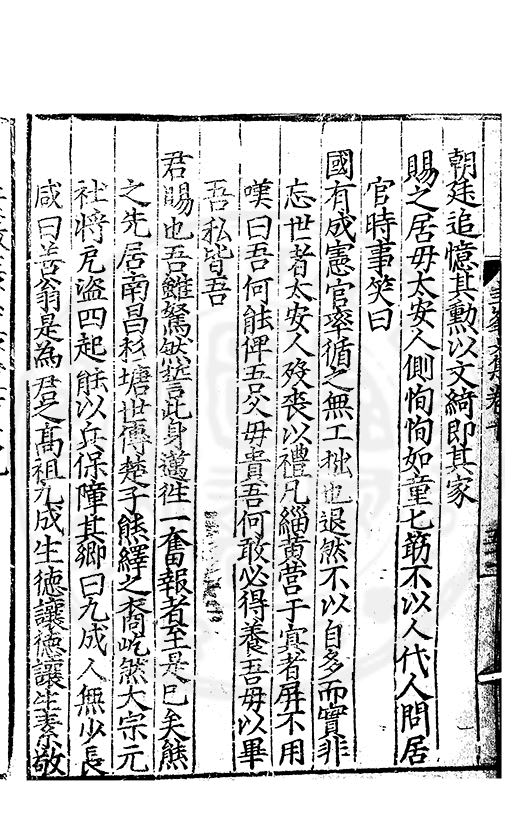 朝廷追憶其勳以文綺即其家
賜之居毋太安人側恂恂如童七筯不以人代人問居
官時事笑曰
國有成憲官率循之無工拙也退然不以自多而實非
忘世者太安人歿喪以禮凡緇黄营于㝠者屏不用
嘆曰吾何能俾吾父毋貴吾何敢必得養吾毋以畢
吾私皆吾
君賜也吾雖駑然誓此身邁徃一奮報者至是已矣熊
之先居南昌杉塘世傳楚子熊繹之裔屹然大宗元
社將𠒋盗四起能以兵保障其郷曰九成人無少長
咸曰善翁是為君之髙祖九成生徳讓徳讓生素敬